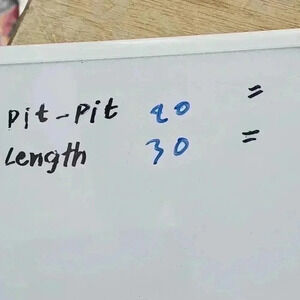 Pit-Pit 20 =
Length 30 =